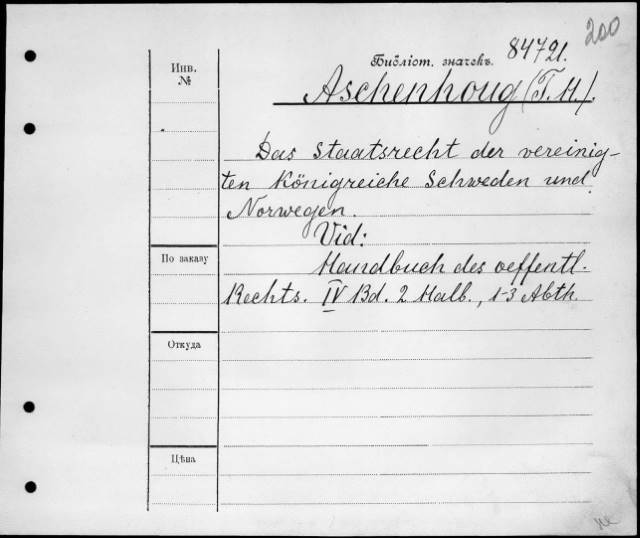 200
Библіот. значекъ. 84721.
Инв.
№
Aschenhoug (T. H.).
Das Staatsrecht der vereinig-
ten Königreiche Schweden und
Norwegen.
Vid:
По заказу
Handbuch des oeffentl.
Rechts. IV Bd. 2 Halb., 1-3 Abth.
Откуда
Цѣна